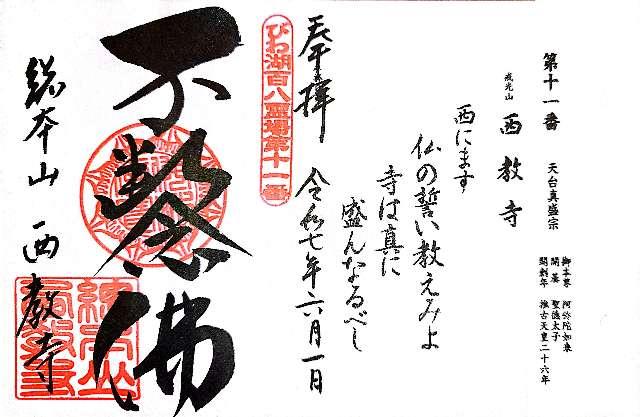 第十一番　天台真盛宗
戒光山　西教寺
御本尊　阿弥陀如来
開基　聖徳太子
開創年　推古天皇二十六年
西にます
仏の誓い教えみよ
寺は真に
盛んなるべし
奉拝　令和七年六月一日
びわ湖百八霊場第十一番
不断念佛
総本山　西教寺